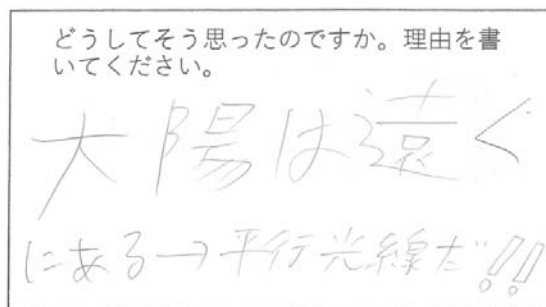 どうしてそう思ったのですか。理由を書
いてください。
大陽は遠く
にある→平行光線だ!!